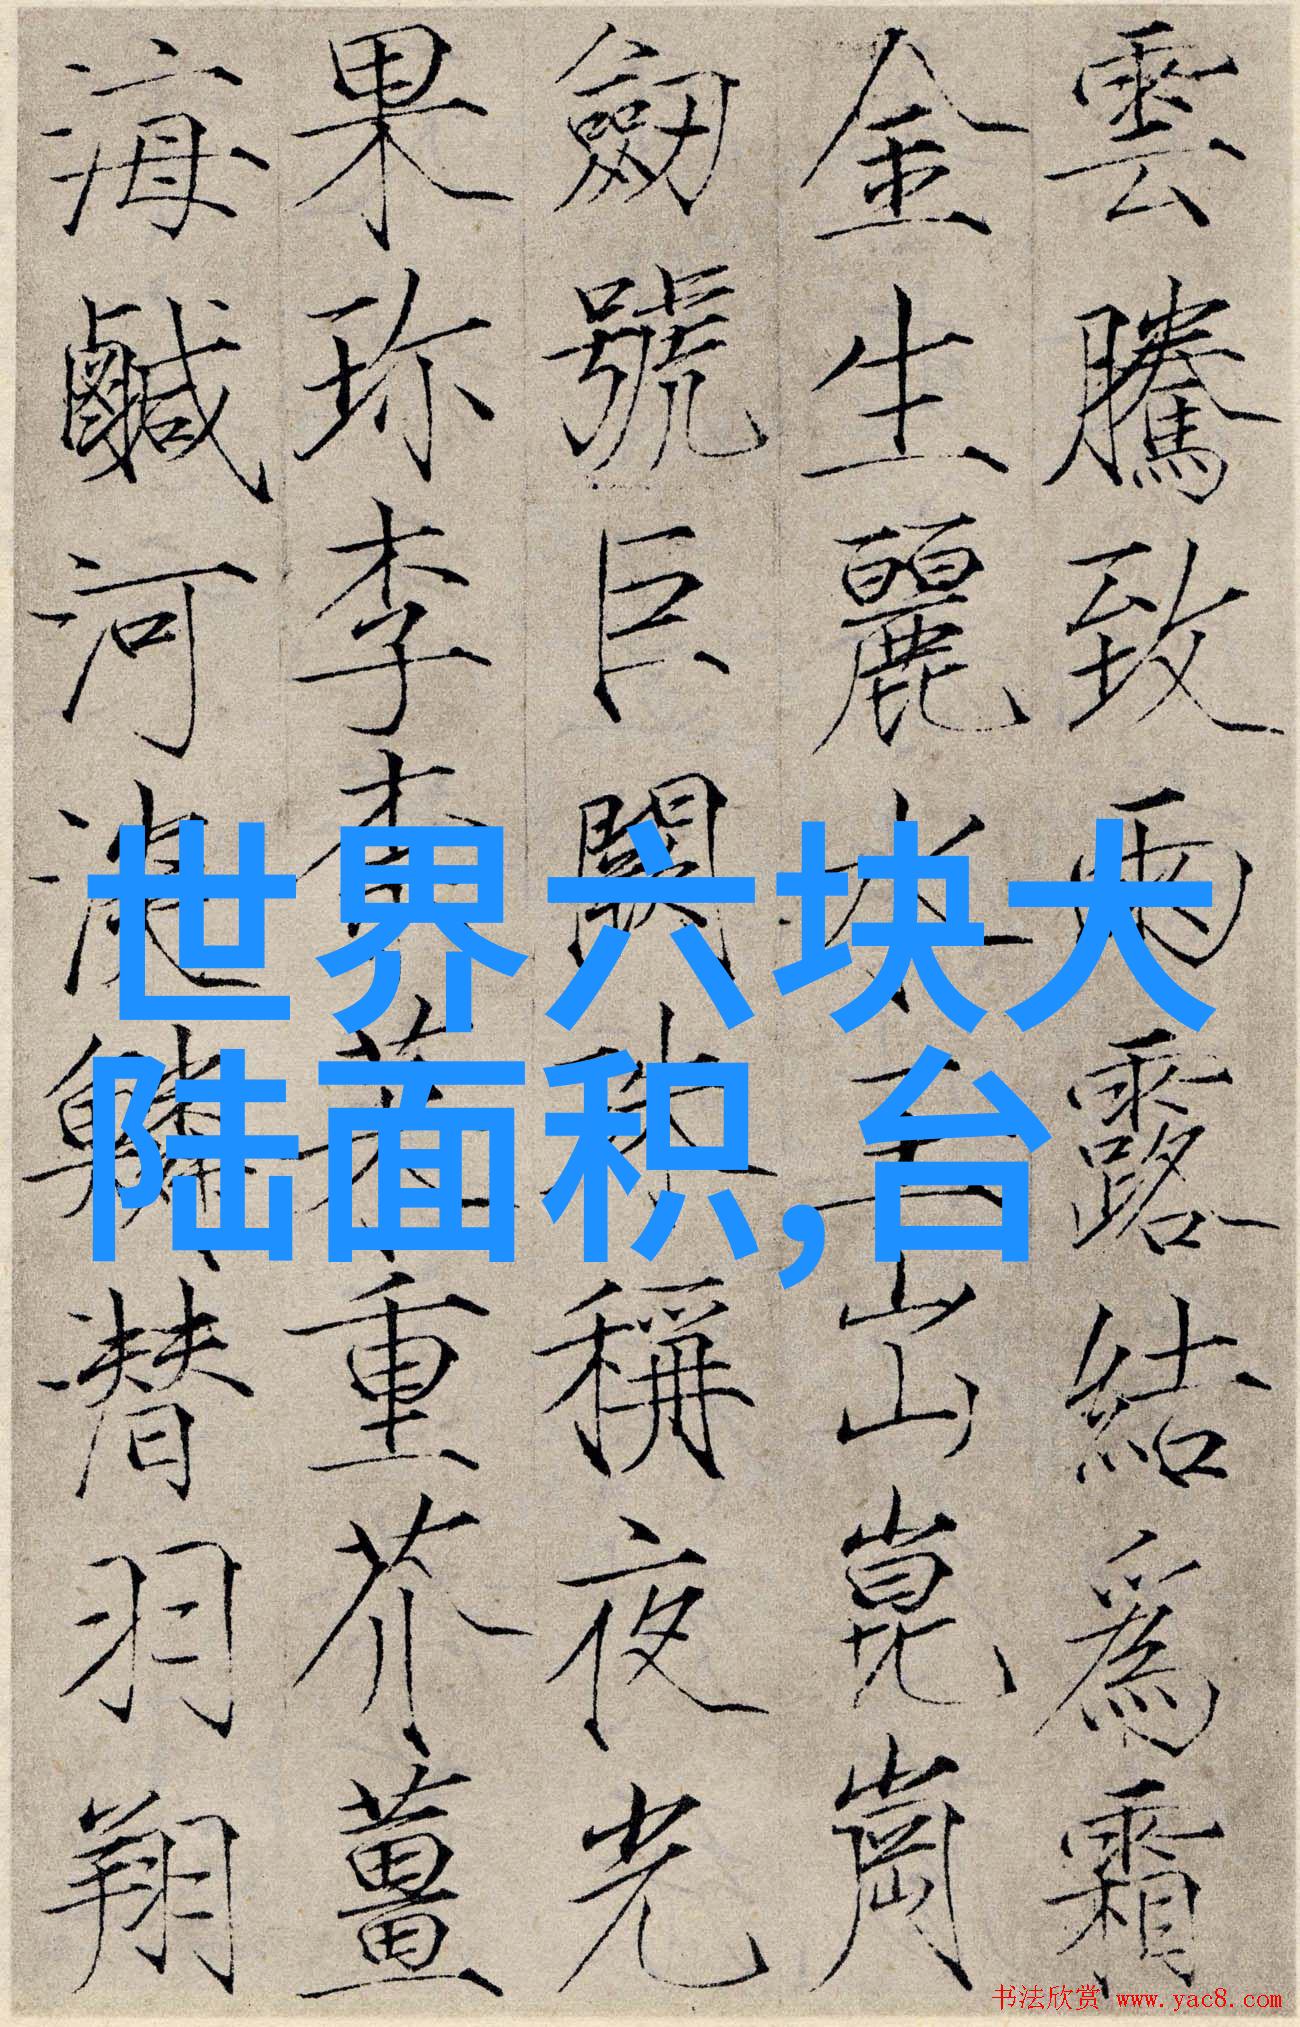 雲騰致雨露結爲霜
金生麗水玉出崑崗
劒號巨闕珠稱夜光
果珎李柰菜重芥薑
海鹹河淡鱗潜羽翔
世界六块大
陆面积,台
书法欣赏 www.yac8.com